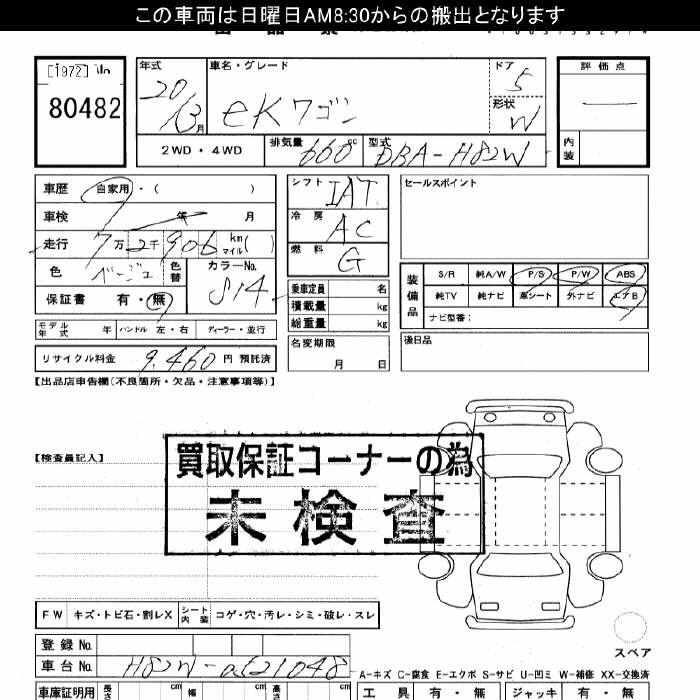 この車両は日曜日AM8:30からの搬出となります
[1972]
80482
年式
20
13月
車名・グレード
eKワゴン
ドア
5
形状
W
2WD・4WD
排気量
660 cc
型式
DBA-H82W
評価点
内装
車歴 自家用・( )
車検 年 月
走行 7万2千906 km マイル( )
色 ベージュ 色替 カラーNo. S14
保証書 有・無
モデル年式 年 ハンドル 左・右 ディーラー・並行
リサイクル料金 9,460円 預託済
シフト IAT
冷房 AC
燃料 G
乗車定員 名
積載量 kg
総重量 kg
名変期限
月 日
セールスポイント
装備品
S/R 純A/W P/S P/W ABS
純TV 純ナビ 革シート 外ナビ エアB
ナビ型番:
後日品
【出品店申告欄(不良箇所・欠品・注意事項等)】
【検査員記入】
買取保証コーナーの為
未検査
FW キズ・トビ石・割レX シート内装 コゲ・穴・汚レ・シミ・破レ・スレ
スペア
登録No.
車台No. H82W-
A-キズ C-腐食 E-エクボ S-サビ U-凹ミ W-補修 XX-交換済
車庫証明用 長さ cm 幅 cm 高さ cm
工具 有・無 ジャッキ 有・無